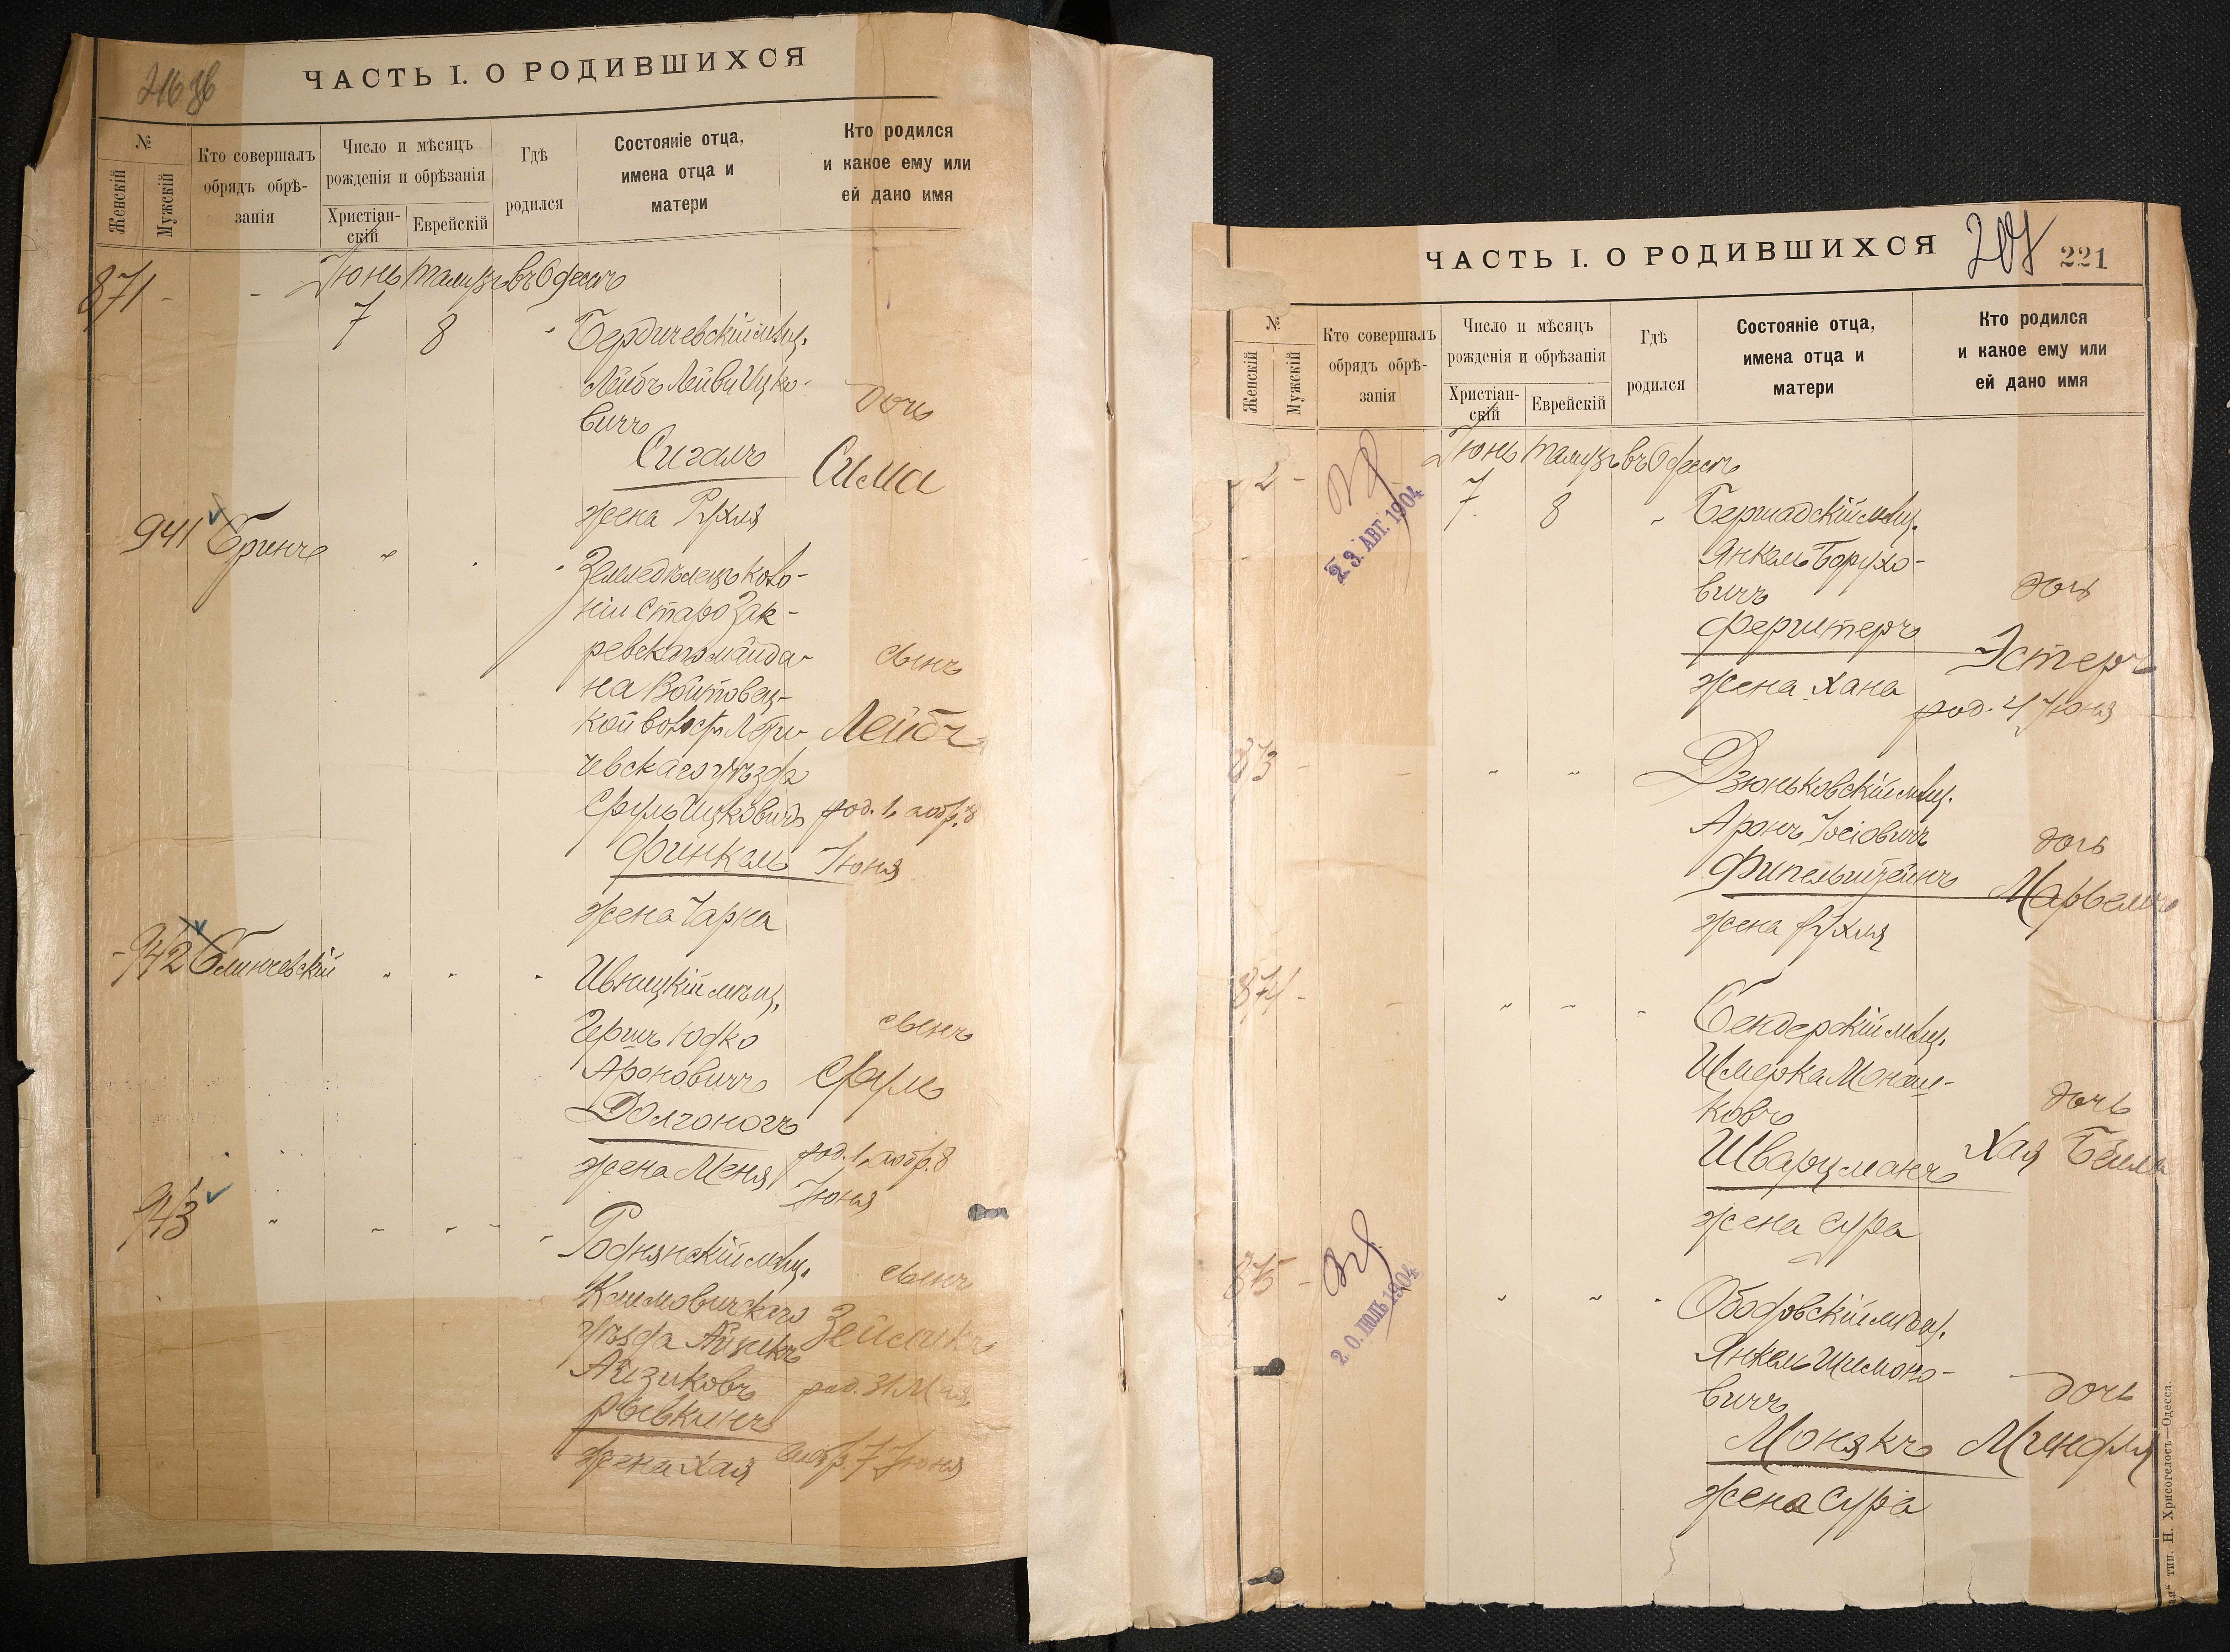 216 об
ЧАСТЬ I. О РОДИВШИХСЯ
№
Женскій
Мужскій
Кто совершалъ
обрядъ обрѣ-
занія
Число и мѣсяцъ
рожденія и обрѣзанія
Христіан-
скій
Еврейскій
Гдѣ
родился
Состояніе отца,
имена отца и
матери
Кто родился
и какое ему или
ей дано имя
871 - - Іюнь Тамузъ въ Одессѣ
7 8 Бердичевскій мѣщ.
Лейбъ Лейви Ицко-
вичъ
дочь
Сигалъ
Сима
жена Рухля
941 Бринче
Земледѣлецъ коло-
ніи Старо Зак-
ревскаго майда-
на Войтовец-
кой волости Лети-
чевскаго уѣзда
Сруль Ицковичъ
Финкель
жена Чарна
сынъ
Лейбъ
род. 1, а обр. 8
Іюня
942 Блинчевскій
Ивницкій мѣщ.
Гершъ Юдко
Ароновичъ
Долгоногъ
жена Меня
сынъ
Сруль
род. 1, а обр. 8
Іюня
943
Роднянскій мѣщ.
Климовичскаго
уѣзда Айзикъ
Айзиковъ
Рывкинъ
жена Хая
сынъ
Зейликъ
род. 31 Мая
а обр. 7 Іюня
ЧАСТЬ I. О РОДИВШИХСЯ
221
№
Женскій
Мужскій
Кто совершалъ
обрядъ обрѣ-
занія
Число и мѣсяцъ
рожденія и обрѣзанія
Христіан-
скій
Еврейскій
Гдѣ
родился
Состояніе отца,
имена отца и
матери
Кто родился
и какое ему или
ей дано имя
2 - Іюнь Тамузъ въ Одессѣ
23. АВГ. 1904
7 8 Бершадскій мѣщ.
Янкель Борухо-
вичъ
Ферштеръ
жена Хана
дочь
Эстеръ
род. 4 Іюня
873
Дзюньковскій мѣщ.
Аронъ Іосіовичъ
Фипельштейнъ
жена Рухля
дочь
874
Бендерскій мѣщ.
Шмерка Монаш-
ковъ
Шварцманъ
жена Сура
дочь
Хая Бейла
875
20. ІЮЛЬ 1904
Ободовскій мѣщ.
Янкель Шимоно-
вичъ
Монякъ
жена Сура
дочь
Миндля
тип. Н. Хрисогелосъ—Одесса.